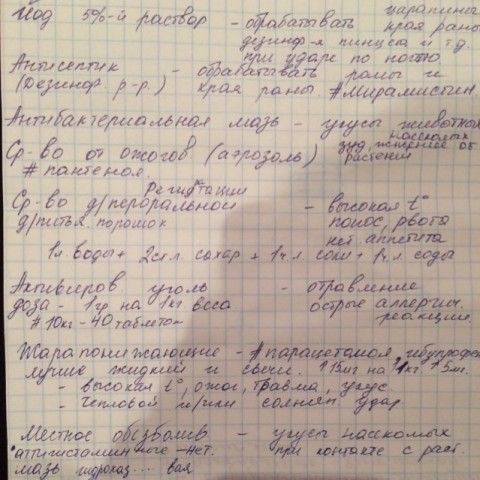 царапины
Йод 5%-й раствор - обрабатывать края раны
дезинф-я пинцета и т.д.
при ударе по ногтю
Антисептик - обрабатывать раны и
(Дезинф р-р.) края раны. #Мирамистин
Антибактериальная мазь - укусы животных
насекомых
Ср-во от ожогов (аэрозоль) зуд, жжение об
растения
# пантенол.
Регидтации
Ср-во д/пероральной - высокая t°
д/питья. порошок понос, рвота
нет аппетита
1л воды + 2ст.л. сахар + 1ч.л соли + 1ч.л соды
Активиров уголь - отравление
доза - 1гр на 1кг веса острые аллергич.
# 10кг - 40 таблеток реакции.
Жаропонижающие - #парацетамол, ибупрофен
лучше жидкий и свечи. 15мг на 1кг. 5мг.
- высокая t°, ожог, травма, укус.
- тепловой и/или солнеч удар.
Местное обезболив - укусы насекомых
антигистаминные - нет. при контакте с раст.
мазь ... вая